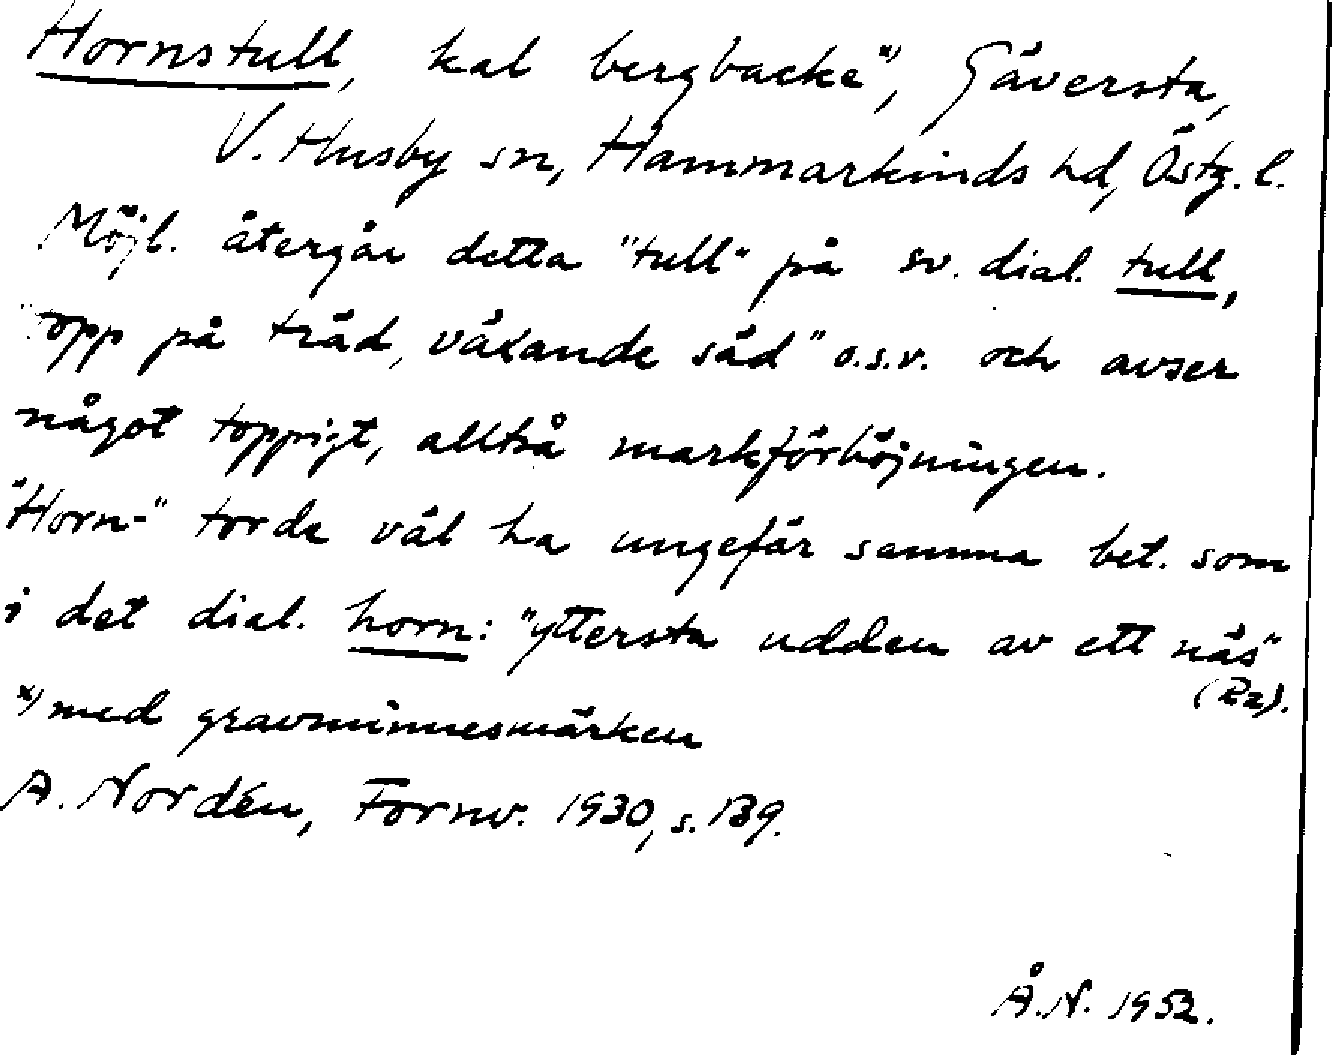 Hornstull, kal bergbacke x), Gäversta,
V. Husby sn, Hammarkinds hd, Östg. l.
Möjl. återgår detta "tull" på sv. dial. tull,
"topp på träd, växande säd" o.s.v. och avser
något toppigt, alltså markförhöjningen.
"Horn-" torde väl ha ungefär samma bet. som
i det dial. horn: "yttersta udden av ett näs"
(Rz).
x) med gravminnesmärken
A. Nordén, Fornv. 1930, s. 139.
Å.N. 1952.